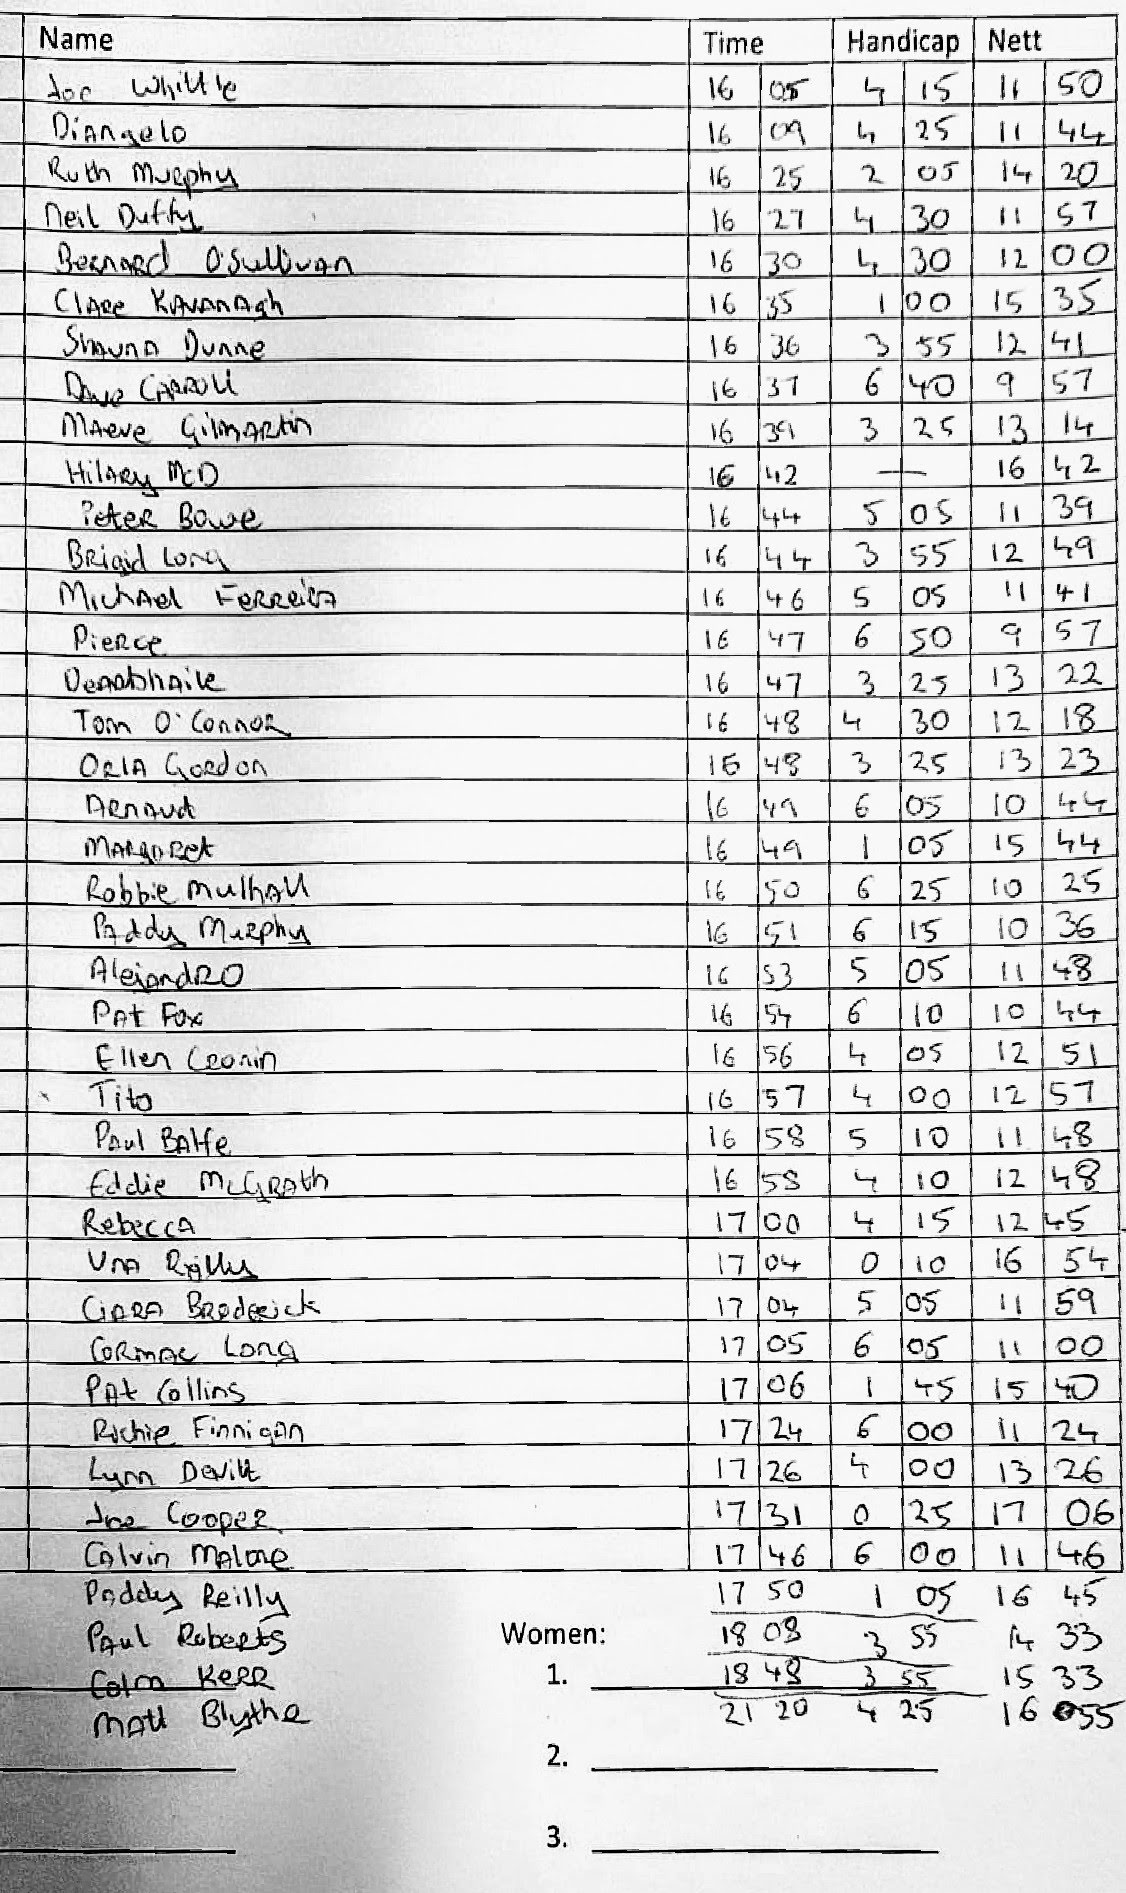 Name Time Handicap Nett
Joe Whittle 16 05 4 15 11 50
DiAngelo 16 09 4 25 11 44
Ruth Murphy 16 25 2 05 14 20
Neil Duffy 16 27 4 30 11 57
Bernard O'Sullivan 16 30 4 30 12 00
Clare Kavanagh 16 35 1 00 15 35
Shauna Dunne 16 36 3 55 12 41
Dave Carroll 16 37 6 40 9 57
Maeve Gilmartin 16 39 3 25 13 14
Hilary McD 16 42 — 16 42
Peter Bowe 16 44 5 05 11 39
Brigid Long 16 44 3 55 12 49
Michael Ferreira 16 46 5 05 11 41
Pierce 16 47 6 50 9 57
Dearbhaile 16 47 3 25 13 22
Tom O'Connor 16 48 4 30 12 18
Orla Gordon 16 48 3 25 13 23
Arnaud 16 49 6 05 10 44
Margaret 16 49 1 05 15 44
Robbie Mulhall 16 50 6 25 10 25
Paddy Murphy 16 51 6 15 10 36
Alejandro 16 53 5 05 11 48
Pat Fox 16 54 6 10 10 44
Ellen Cronin 16 56 4 05 12 51
Tito 16 57 4 00 12 57
Paul Balfe 16 58 5 10 11 48
Eddie McGrath 16 58 4 10 12 48
Rebecca 17 00 4 15 12 45
Una Reilly 17 04 0 10 16 54
Ciara Broderick 17 04 5 05 11 59
Cormac Long 17 05 6 05 11 00
Pat Collins 17 06 1 45 15 40
Richie Finnigan 17 24 6 00 11 24
Lynn Devitt 17 26 4 00 13 26
Joe Cooper 17 31 0 25 17 06
Calvin Malone 17 46 6 00 11 46
Paddy Reilly 17 50 1 05 16 45
Paul Roberts Women: 18 08 3 55 14 33
Colm Kerr 1. 18 48 3 55 15 33
Matt Blythe 21 20 4 25 16 55
2.
3.